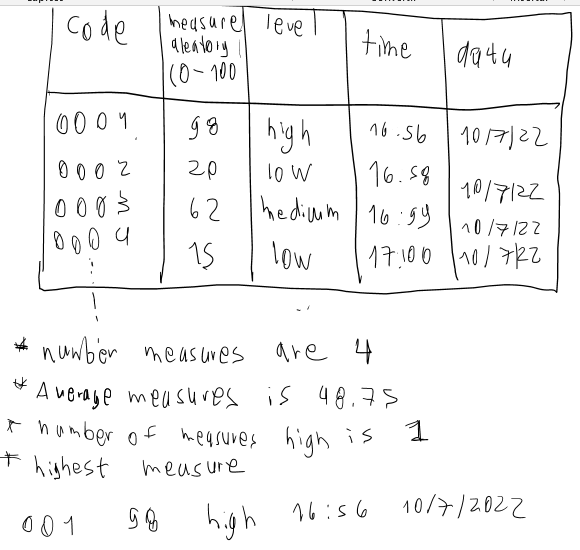 code measure aleatory (0-100 level time data
0001 98 high 16.56 10/7/22
0002 20 low 16.58 10/7/22
0003 62 medium 16:59 10/7/22
0004 15 low 17:00 10/7/22
* number measures are 4
* Average measures is 48.75
* number of measures high is 1
* highest measure
001 98 high 16:56 10/7/2022